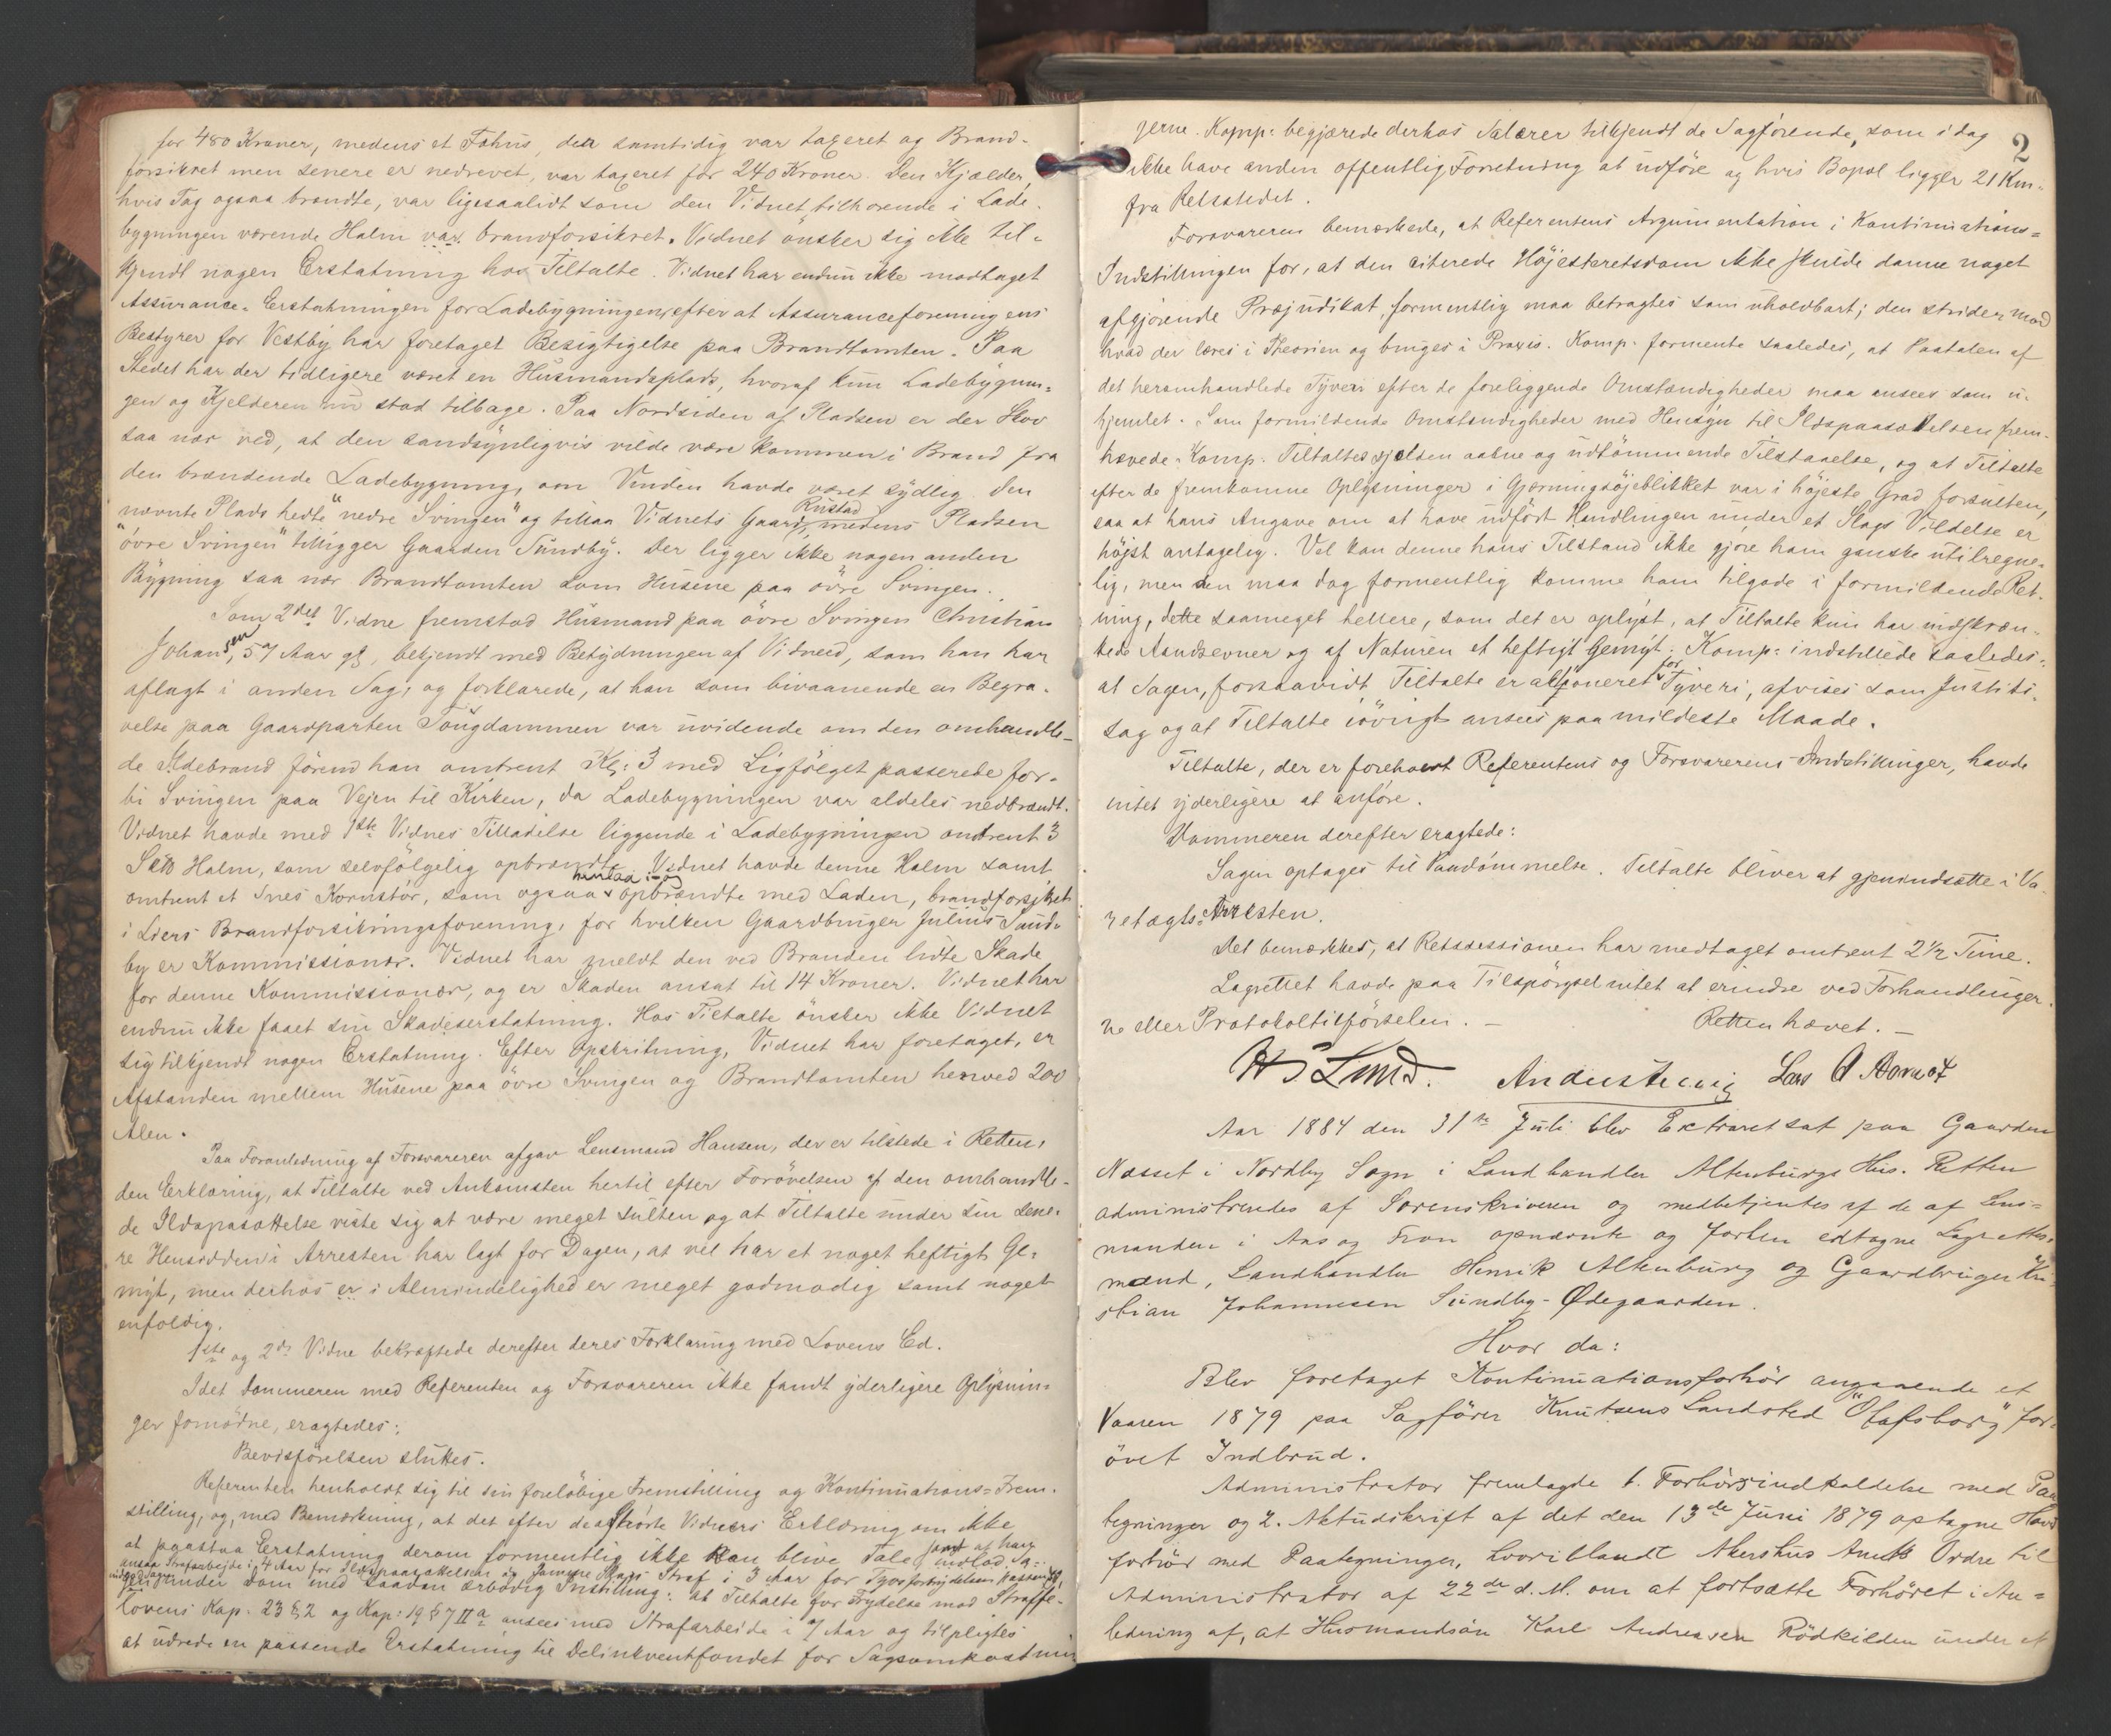 for 480 Kroner, medens et Fähus, der samtidig var taxeret og Brand-
forsikret men senere er nedrevet, var taxeret for 240 Kroner. Den Kjælder,
hvis Tag ogsaa brændte, var ligesaalidt som den Vidnet tilhørende i Lade-
bygningen værende Halm var brandforsikret. Vidnet ønsker sig ikke til-
kjendt nogen Erstatning hos Tiltalte. Vidnet har endnu ikke modtaget
Assurance-Erstatningen for Ladebygningen, efter at Assuranceforeningens
Bestyrer for Vestby har foretaget Besigtigelse paa Brandtomten. Paa
Stedet har der tidligere været en Husmandsplads, hvoraf kun Ladebygnin-
gen og Kjelderen nu stod tilbage. Paa Nordsiden af Pladsen er der Skov
saa nær ved, at den sandsynligvis vilde være kommen i Brand fra
den brændende Ladebygning, om Vinden havde været sydlig. Den
nævnte Plads hedte "nedre Svingen" og tillaa Vidnets Gaard Rustad, medens Pladsen
"øvre Svingen" tilligger Gaarden Sundby. Der ligger ikke nogen anden
Bygning saa nær Brandtomten som Husene paa øvre Svingen.
Som 2det Vidne fremstod Husmand paa øvre Svingen Christian
Johansen, 57 Aar gl, bekjendt med Betydningen af Vidneed, som han har
aflagt i anden Sag, og forklarede, at han som bivaanende en Begra-
velse paa Gaardparten Tougdammen var uvidende om den omhandle-
de Ildebrand førend han omtrent Kl: 3 med Ligfølget passerede for-
bi Svingen paa Vejen til Kirken, da Ladebygningen var aldeles nedbrændt.
Vidnet havde med 1ste Vidnes Tilladelse liggende i Ladebygningen omtrent 3
Sk℔ Halm, som selvfølgelig opbrændte. Vidnet havde denne Halm samt
omtrent et Snes Kornstør, som ogsaa opbrændte med Laden, brandforsikret
i Liers Brandforsikringsforening, for hvilken Gaardbruger Julius Sund-
by er Kommissionær. Vidnet har meldt den ved Branden lidte Skade
for denne Kommissionær, og er Skaden ansat til 14 Kroner. Vidnet har
endnu ikke faaet sin Skadeserstatning. Hos Tiltalte ønsker ikke Vidnet
sig tilkjendt nogen Erstatning. Efter Opskritning, Vidnet har foretaget, er
Afstanden mellem Husene paa øvre Svingen og Brandtomten henved 200
Alen.
Paa Foranledning af Forsvareren afgav Lensmand Hansen, der er tilstede i Retten,
den Erklæring, at Tiltalte ved Ankomsten hertil efter Forøvelsen af den omhandle-
de Ildspaasættelse viste sig at være meget sulten og at Tiltalte under sin sene-
re Hensidden i Arresten har lagt for Dagen, at vel har et noget heftigt Ge-
myt, men derhos er i Almindelighed er meget godmodig samt noget
enfoldig.
1ste og 2det Vidne bekræftede derefter deres Forklaring med Lovens Ed.
Idet Dommeren med Referenten og Forsvareren ikke fandt yderligere Oplysnin-
ger fornødne, eragtedes:
Bevisførelsen sluttes.
Referenten henholdt sig til sin foreløbige Fremstilling og Kontinuations-Frem-
stilling, og, med Bemærkning, at det efter de afhørte Vidners Erklæring om ikke
at paastaa Erstatning derom formentlig ikke kan blive Tale samt at han
ansaa Strafarbejde i 4 Aar for Ildspaasættelsen og samme Slags Straf i 3 Aar for Tyvsforbrydelsen passende,
under Dom med saadan ærbødig Instilling: at Tiltalte for Frydelse mod Straffe-
lovens Kap. 23 § 2 og Kap: 19 § 7 II a ansees med Strafarbeide i 7 Aar og tilpligtes
at udrede en passende Erstatning til Delinkventfondet for Sagsomkostnin
2
gerne. Komp: begjærede derhos Salærer tilkjendt de Sagførende, som i dag
ikke have anden offentlig Forretning at udføre og hvis Bopæl ligger 21 Km-
fra Retsstedet.
Forsvareren bemærkede, at Referentens Argumentation i Kontinuations-
Indstillingen for, at den citerede Højesteretsdom ikke skulde danne noget
afgjørende Præjudikat, formentlig maa betragtes som uholdbart; den strider mod
hvad der læres i Theorien og bruges i Praxis. Komp. formente saaledes, at Paatalen af
det heromhandlede Tyveri efter de foreliggende Omstændigheder maa ansees som u-
hjemlet. Som formildende Omstændigheder med Hensyn til Ildspaasættelsen frem-
hævede Komp. Tiltaltes sjelden aabne og udtømmende Tilstaaelse, og at Tiltalte
efter de fremkomne Oplysninger i Gjerningsøjeblikket var i højeste Grad forsulten,
saa at hans Angave om at have udført Handlingen under et Slags Vildelse er
højst antagelig. Vel kan denne hans Tilstand ikke gjøre ham ganske utilregne-
lig, men den maa dog formentlig komme ham tilgode i formildende Ret-
ning, dette saameget hellere, som det er oplyst, at Tiltalte kun har indskræn-
kede Aandsevner og af Naturen et heftigt Gemyt. Komp: indstillede saaledes:
at Sagen, forsaavidt Tiltalte er aktioneret for Tyveri, afvises som Justits-
sag og at Tiltalte iøvrigt ansees paa mildeste Maade.
Tiltalte, der er forehørt Referentens og Forsvarerens Indstillinger, havde
intet yderligere at anføre.
Dommeren derefter eragtede:
Sagen optages til Paadømmelse. Tiltalte bliver at gjenindsætte i Va-
retægts-Arresten.
Det bemærkes, at Retssessionen har medtaget omtrent 2½ Time.
Lagrettet havde paa Tilspørgsel intet at erindre ved Forhandlinger-
ne eller Protokoltilførselen. — Retten hævet. —
Lind. Lars A
Aar 1884 den 31te Juli blev Extraret sat paa Gaarden
Næsset i Nordby Sogn i Landhandler Altenburgs Hus. Retten
administreredes af Sorenskriveren og medbetjentes af de af Lens-
manden i Aas og Fron opnævnte og forhen edtagne Lagrettes-
mænd, Landhandler Henrik Altenburg og Gaardbruger Kri
stian Johannesen Sundby-Ødegaarden.
Hvor da:
Blev foretaget Kontinuationsforhør angaaende et
Vaaren 1879 paa Sagfører Knutsens Landsted "Olafsborg" for-
øvet Indbrud.
Administrator fremlagde 1. Forhørsindkaldelse med Paa
tegninger og 2. Aktudskrift af det den 13de Juni 1879 optagne Hoved
forhør med Paategninger, hvoriblandt Akershus Amts Ordre til
Administrator af 22de d. M. om at fortsætte Forhøret i An-
ledning af, at Husmandsøn Karl Andreasen Rødkilden under et